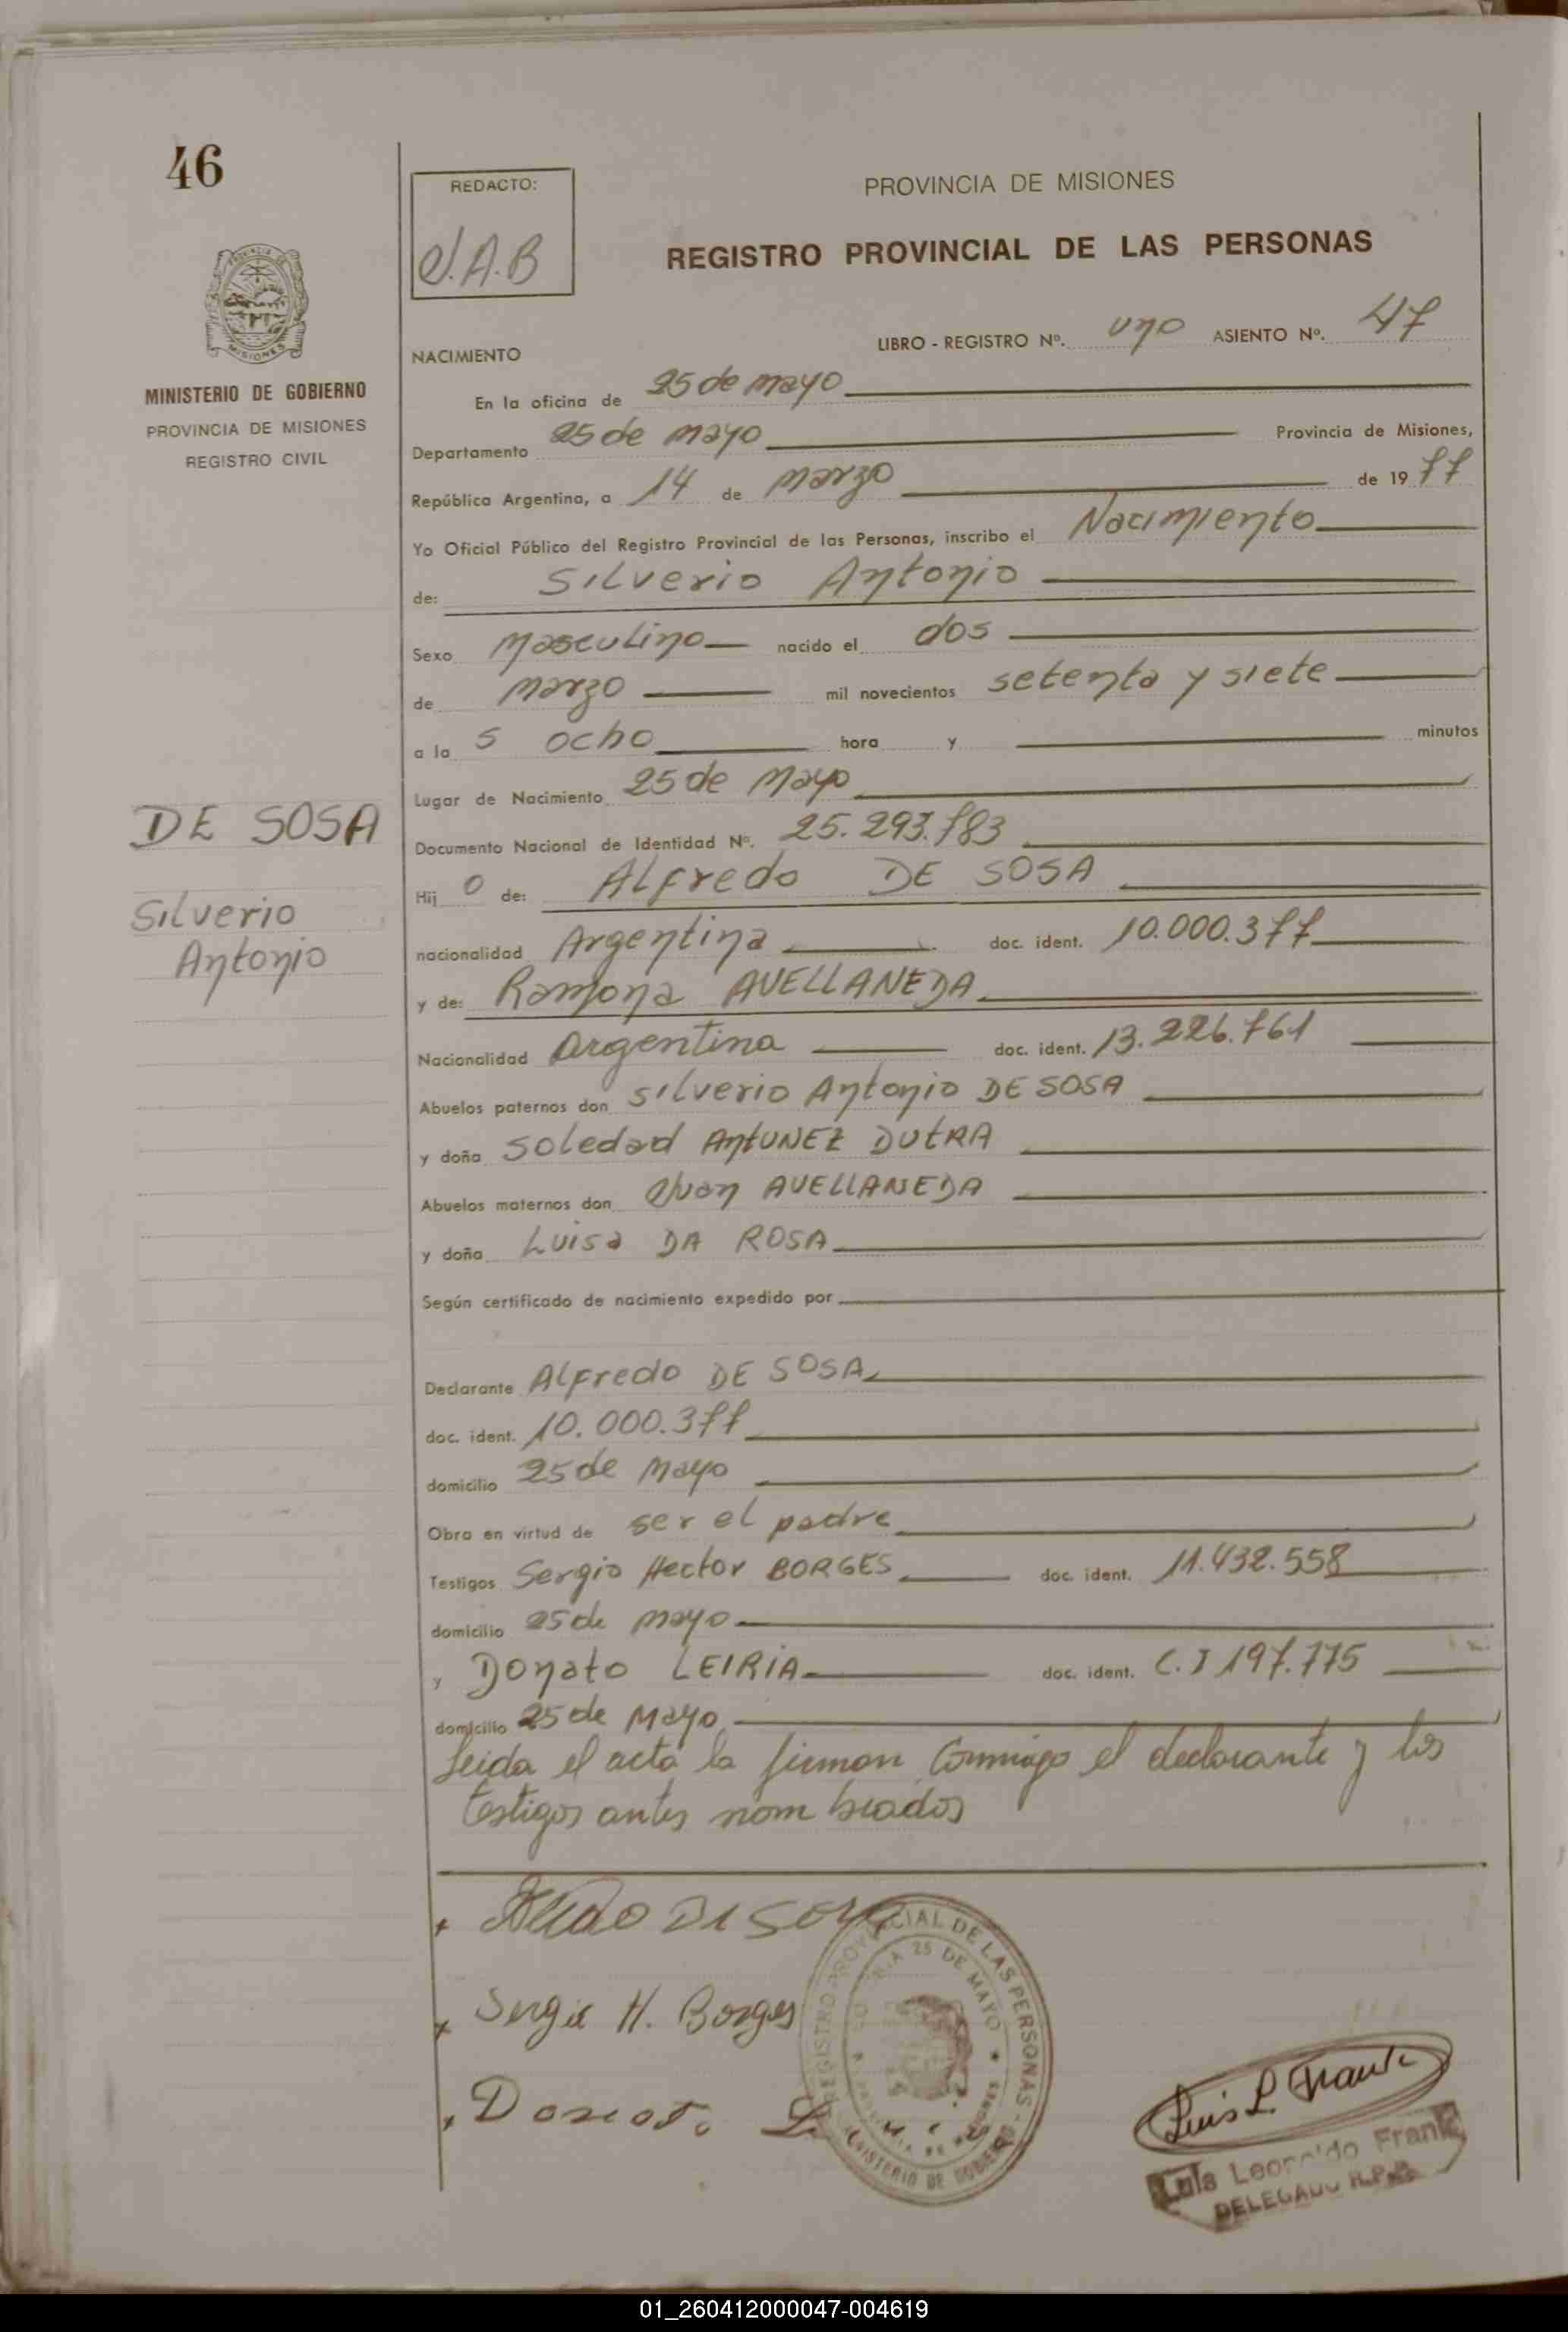 46
REDACTO:
J.A.B
PROVINCIA DE MISIONES
REGISTRO PROVINCIAL DE LAS PERSONAS
MINISTERIO DE GOBIERNO
PROVINCIA DE MISIONES
REGISTRO CIVIL
LIBRO - REGISTRO Nº. uno ASIENTO Nº. 47
NACIMIENTO
En la oficina de 25 de mayo
Departamento 25 de mayo Provincia de Misiones,
República Argentina, a 14 de marzo de 1977
Yo Oficial Público del Registro Provincial de las Personas, inscribo el Nacimiento
de: Silverio Antonio
Sexo masculino nacido el dos
de marzo mil novecientos setenta y siete
a la s ocho hora y minutos
Lugar de Nacimiento 25 de Mayo
DE SOSA
Silverio
Antonio
Documento Nacional de Identidad Nº. 25.293.783
Hij o de: Alfredo DE SOSA
nacionalidad Argentina doc. ident. 10.000.377
y de: Ramona AVELLANEDA
Nacionalidad Argentina doc. ident. 13.226.761
Abuelos paternos don Silverio Antonio DE SOSA
y doña Soledad ANTUNEZ DUTRA
Abuelos maternos don Juan AVELLANEDA
y doña Luisa DA ROSA
Según certificado de nacimiento expedido por
Declarante Alfredo DE SOSA
doc. ident. 10.000.377
domicilio 25 de Mayo
Obra en virtud de ser el padre
Testigos Sergio Hector BORGES doc. ident. 11.432.558
domicilio 25 de mayo
y Donato LEIRIA doc. ident. C.I 197.775
domicilio 25 de Mayo
Leida el acta la firman conmigo el declarante y los
testigos antes nombrados
Sergio H. Borges
REGISTRO PROVINCIAL DE LAS PERSONAS
25 DE MAYO
MINISTERIO DE GOBIERNO
Luis L. Frank
Luis Leopoldo Frank
DELEGADO R.P.P.
01_260412000047-004619